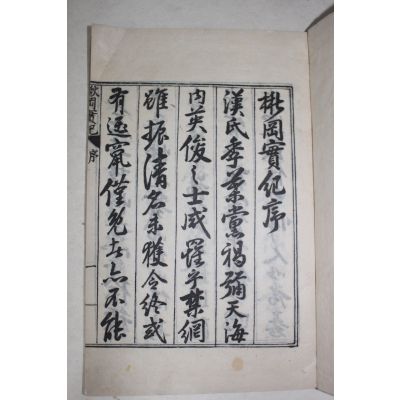 岡實紀序
漢氏季葉黨禍彌天海
內英俊之士咸罹乎禁網
雖振清名未獲令終或
有竄僅免者亦不能
岡實紀 序 一